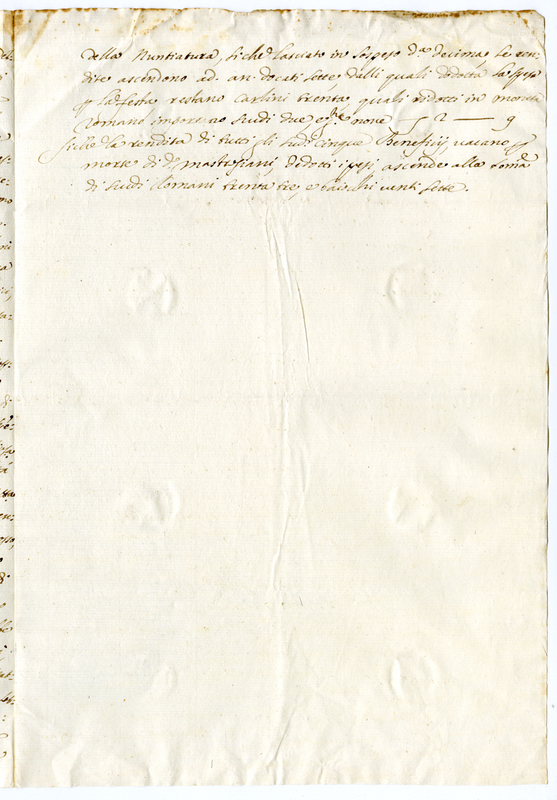 della Nuntiatura, siche lasciato in sospeso d.ª decima le ren=
dite ascendono ad. an. docati sette dalli quali dedotta la spesa
la festa restano Carlini trenta, quali ridotti in moneta
Romana importano scudi due e none 2 — 9
Siche la rendita di tutti li sud. cinque Beneficij vacano
morte di d. Mastrogiani, dedotti i pesi ascende alla somª
di scudi Romani trenta tre, e baiochi venti sette.